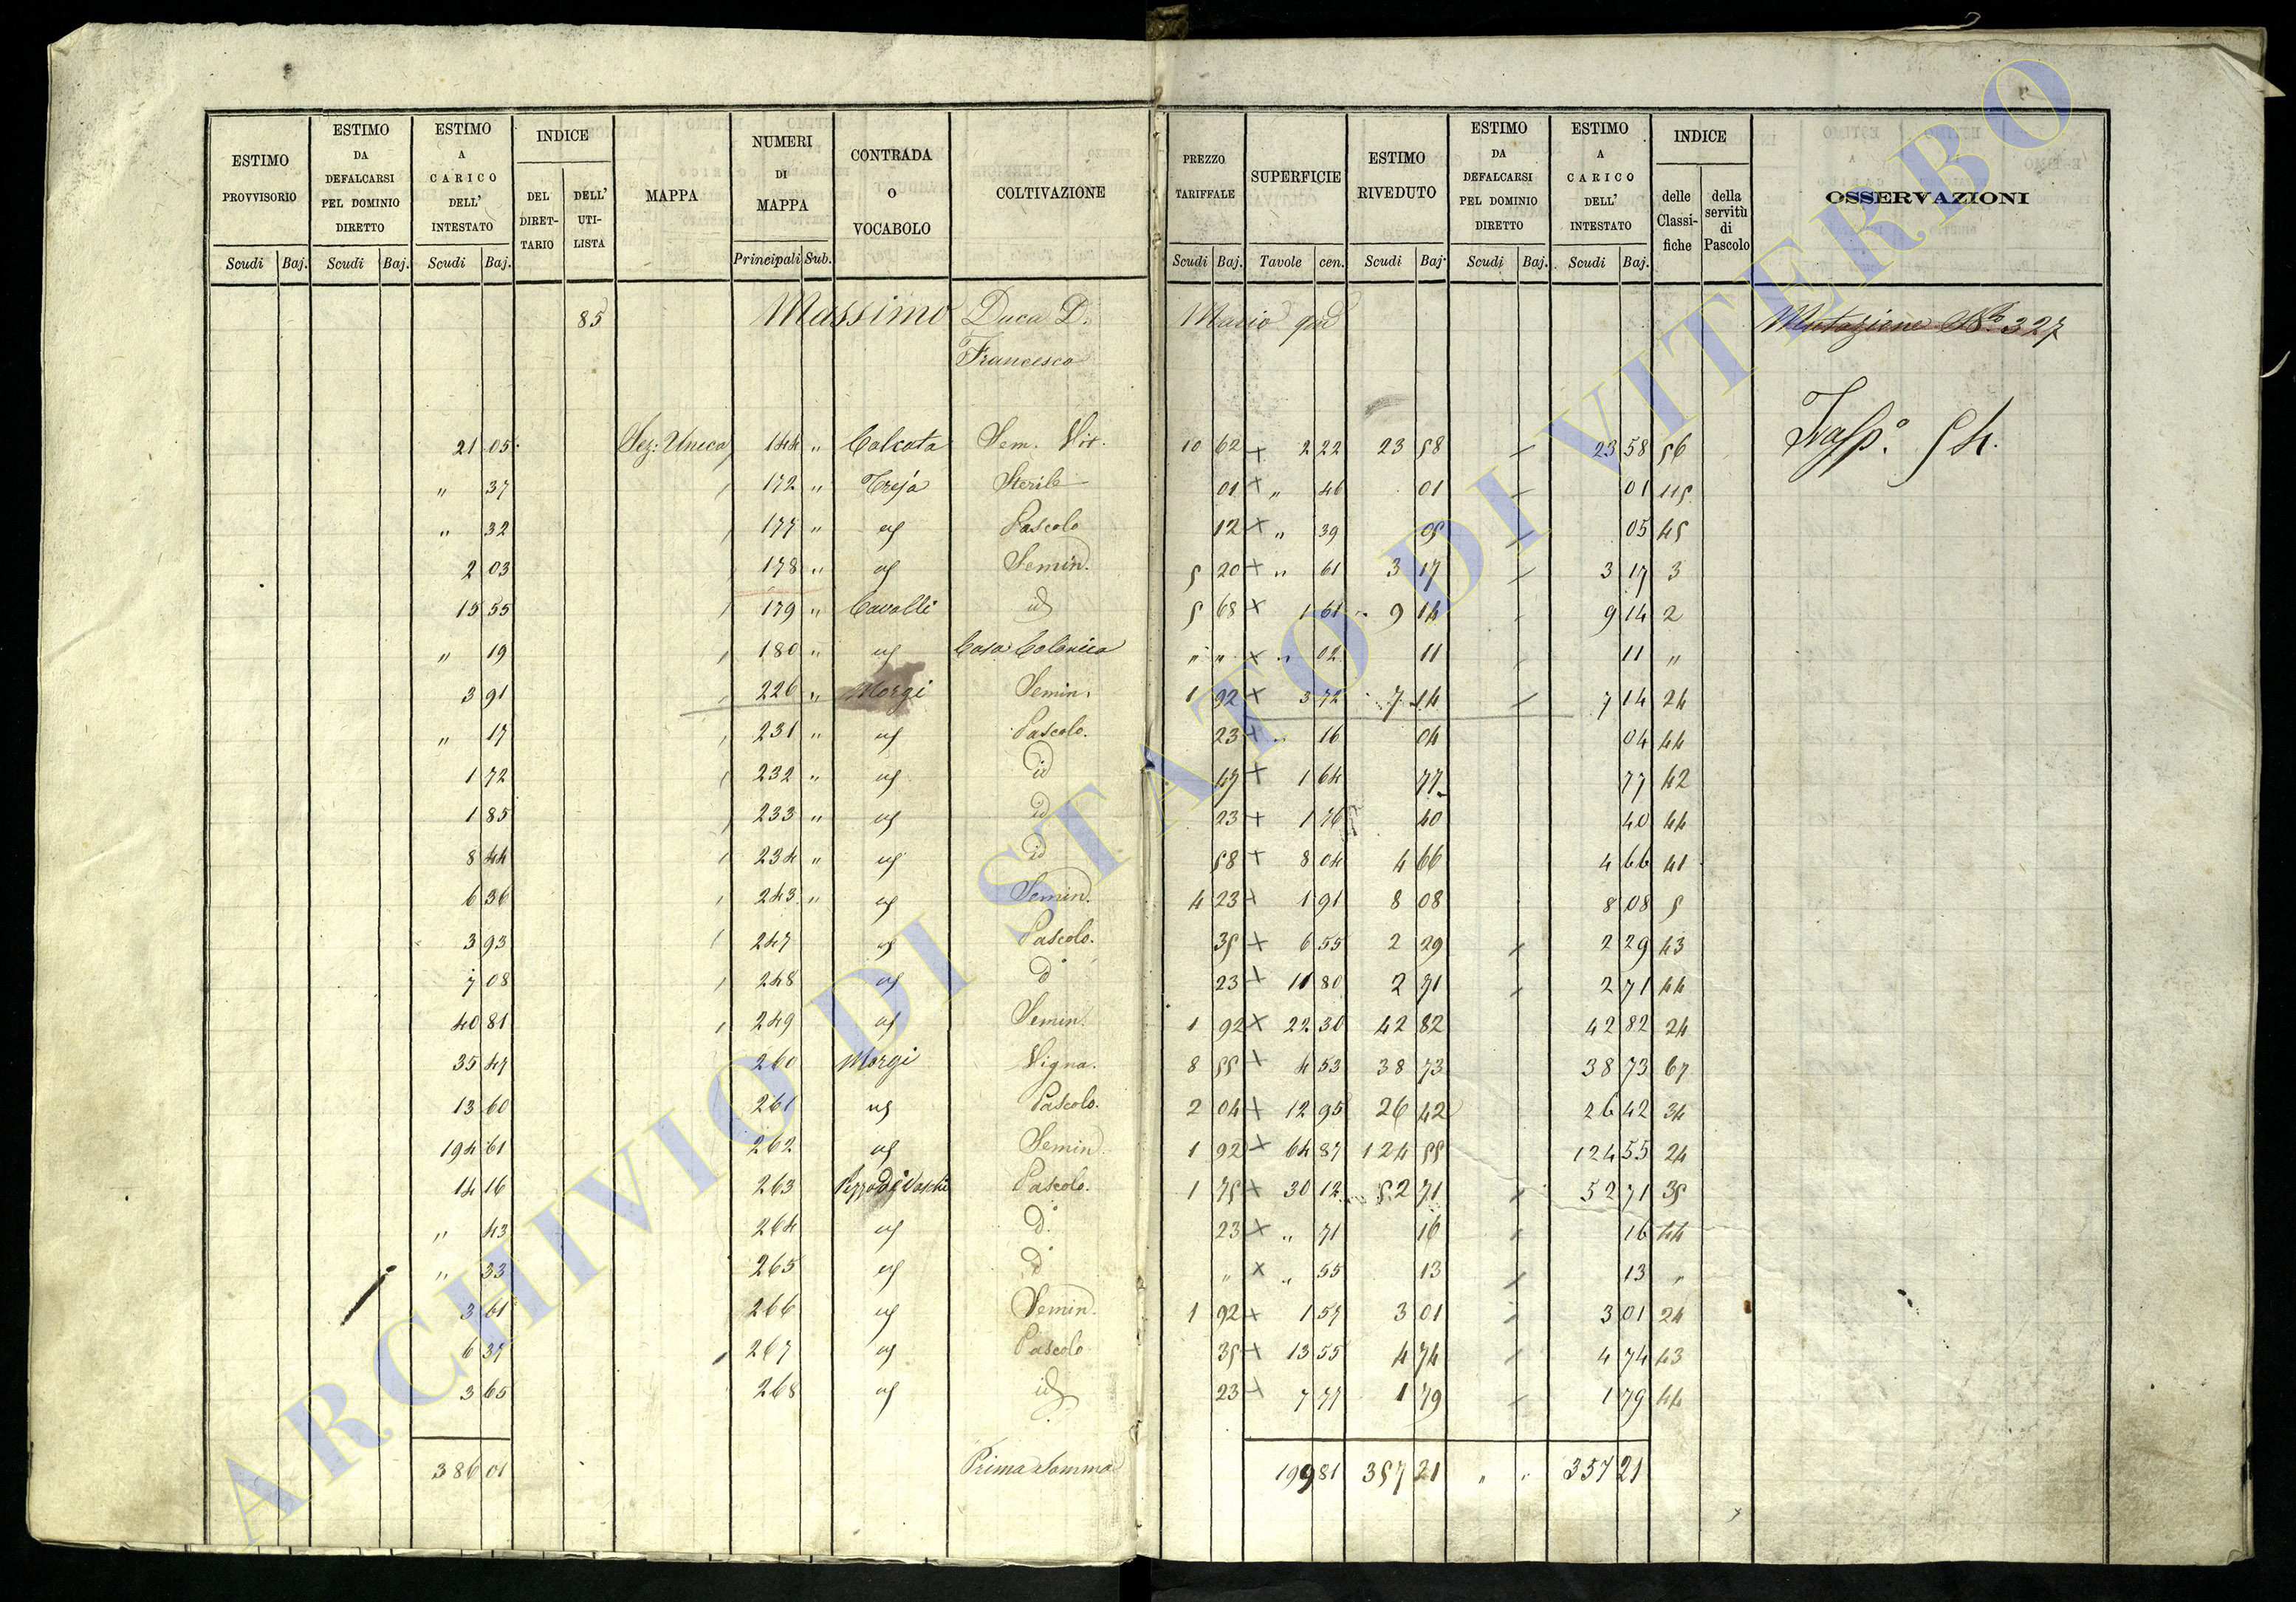 ESTIMO PROVVISORIO | ESTIMO DA DEFALCARSI PEL DOMINIO DIRETTO | ESTIMO A CARICO DELL' INTESTATO | INDICE | MAPPA | NUMERI DI MAPPA | CONTRADA O VOCABOLO | COLTIVAZIONE | PREZZO TARIFFALE | SUPERFICIE | ESTIMO RIVEDUTO | ESTIMO DA DEFALCARSI PEL DOMINIO DIRETTO | ESTIMO A CARICO DELL' INTESTATO | INDICE | OSSERVAZIONI
DEL DIRET- TARIO | DELL' UTI- LISTA | delle Classi- fiche | della servitù di Pascolo
Scudi Baj. | Scudi Baj. | Scudi Baj. | Principali Sub. | Scudi Baj. | Tavole cen. | Scudi Baj. | Scudi Baj. | Scudi Baj.
85 Massimo Duca D. Mario qm Mutazione 327
Francesco
Trasp.° 54.
21 05 Sez: Unica 144 " Calcata Sem. Vit. 10 62 2 22 23 58 23 58 56
" 37 172 " Treja Sterile 01 " 46 01 01 115
" 32 177 " Pascolo 12 " 39 05 05 45
2 03 178 " Semin. 5 20 " 61 3 17 3 17 3
15 55 179 " Cavalli id 5 68 1 61 9 14 9 14 2
" 19 180 " Casa Colonica " " " 02 11 11 "
3 91 226 " Morgi Semin. 1 92 3 72 7 14 7 14 24
" 17 231 " Pascolo. 23 " 16 04 04 44
1 72 232 " id 47 1 64 77 77 42
1 85 233 " id 23 1 76 40 40 44
8 44 234 " id 58 8 04 4 66 4 66 41
6 36 243 " Semin. 4 23 1 91 8 08 8 08 5
3 93 247 Pascolo. 35 6 55 2 29 2 29 43
7 08 248 d° 23 11 80 2 71 2 71 44
40 81 249 Semin. 1 92 22 30 42 82 42 82 24
35 47 260 Morgi Vigna. 8 55 4 53 38 73 38 73 67
13 60 261 Pascolo. 2 04 12 95 26 42 26 42 34
194 61 262 Semin. 1 92 64 87 124 55 124 55 24
14 16 263 Pascolo. 1 75 30 12 52 71 52 71 35
" 43 264 d° 23 " 71 16 16 44
" 33 265 d° " " 55 13 13 "
3 61 266 Semin. 1 92 1 57 3 01 3 01 24
6 37 267 Pascolo 35 13 55 4 74 4 74 43
3 65 268 id 23 7 77 1 79 1 79 44
386 01 Prima Somma 199 81 357 21 " " 357 21
ARCHIVIO DI STATO DI VITERBO